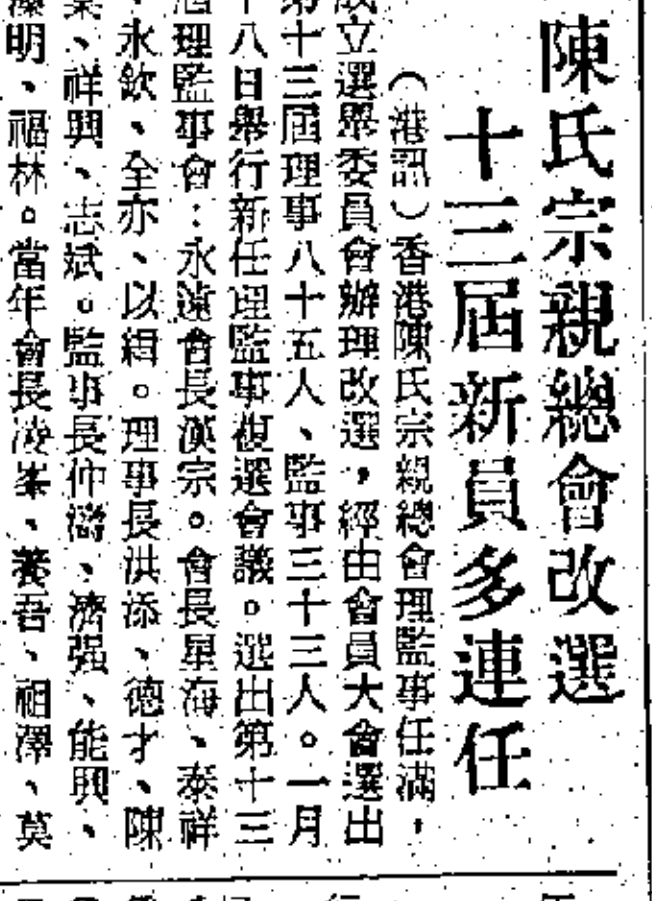 陳氏宗親總會改選
十三屆新員多連任
（港訊）香港陳氏宗親總會理監事任滿，
成立選舉委員會辦理改選，經由會員大會選出
第十三屆理事八十五人、監事三十三人。一月
十八日舉行新任理監事復選會議。選出第十三
屆理監事會：永遠會長漢宗。會長星海、泰祥
、永欽、全亦、以緝。理事長洪添、德才、陳
業、祥興、志斌。監事長仲濤、濟强、能興、
深明、福林。當年會長凌峯、養吾、祖澤、莫